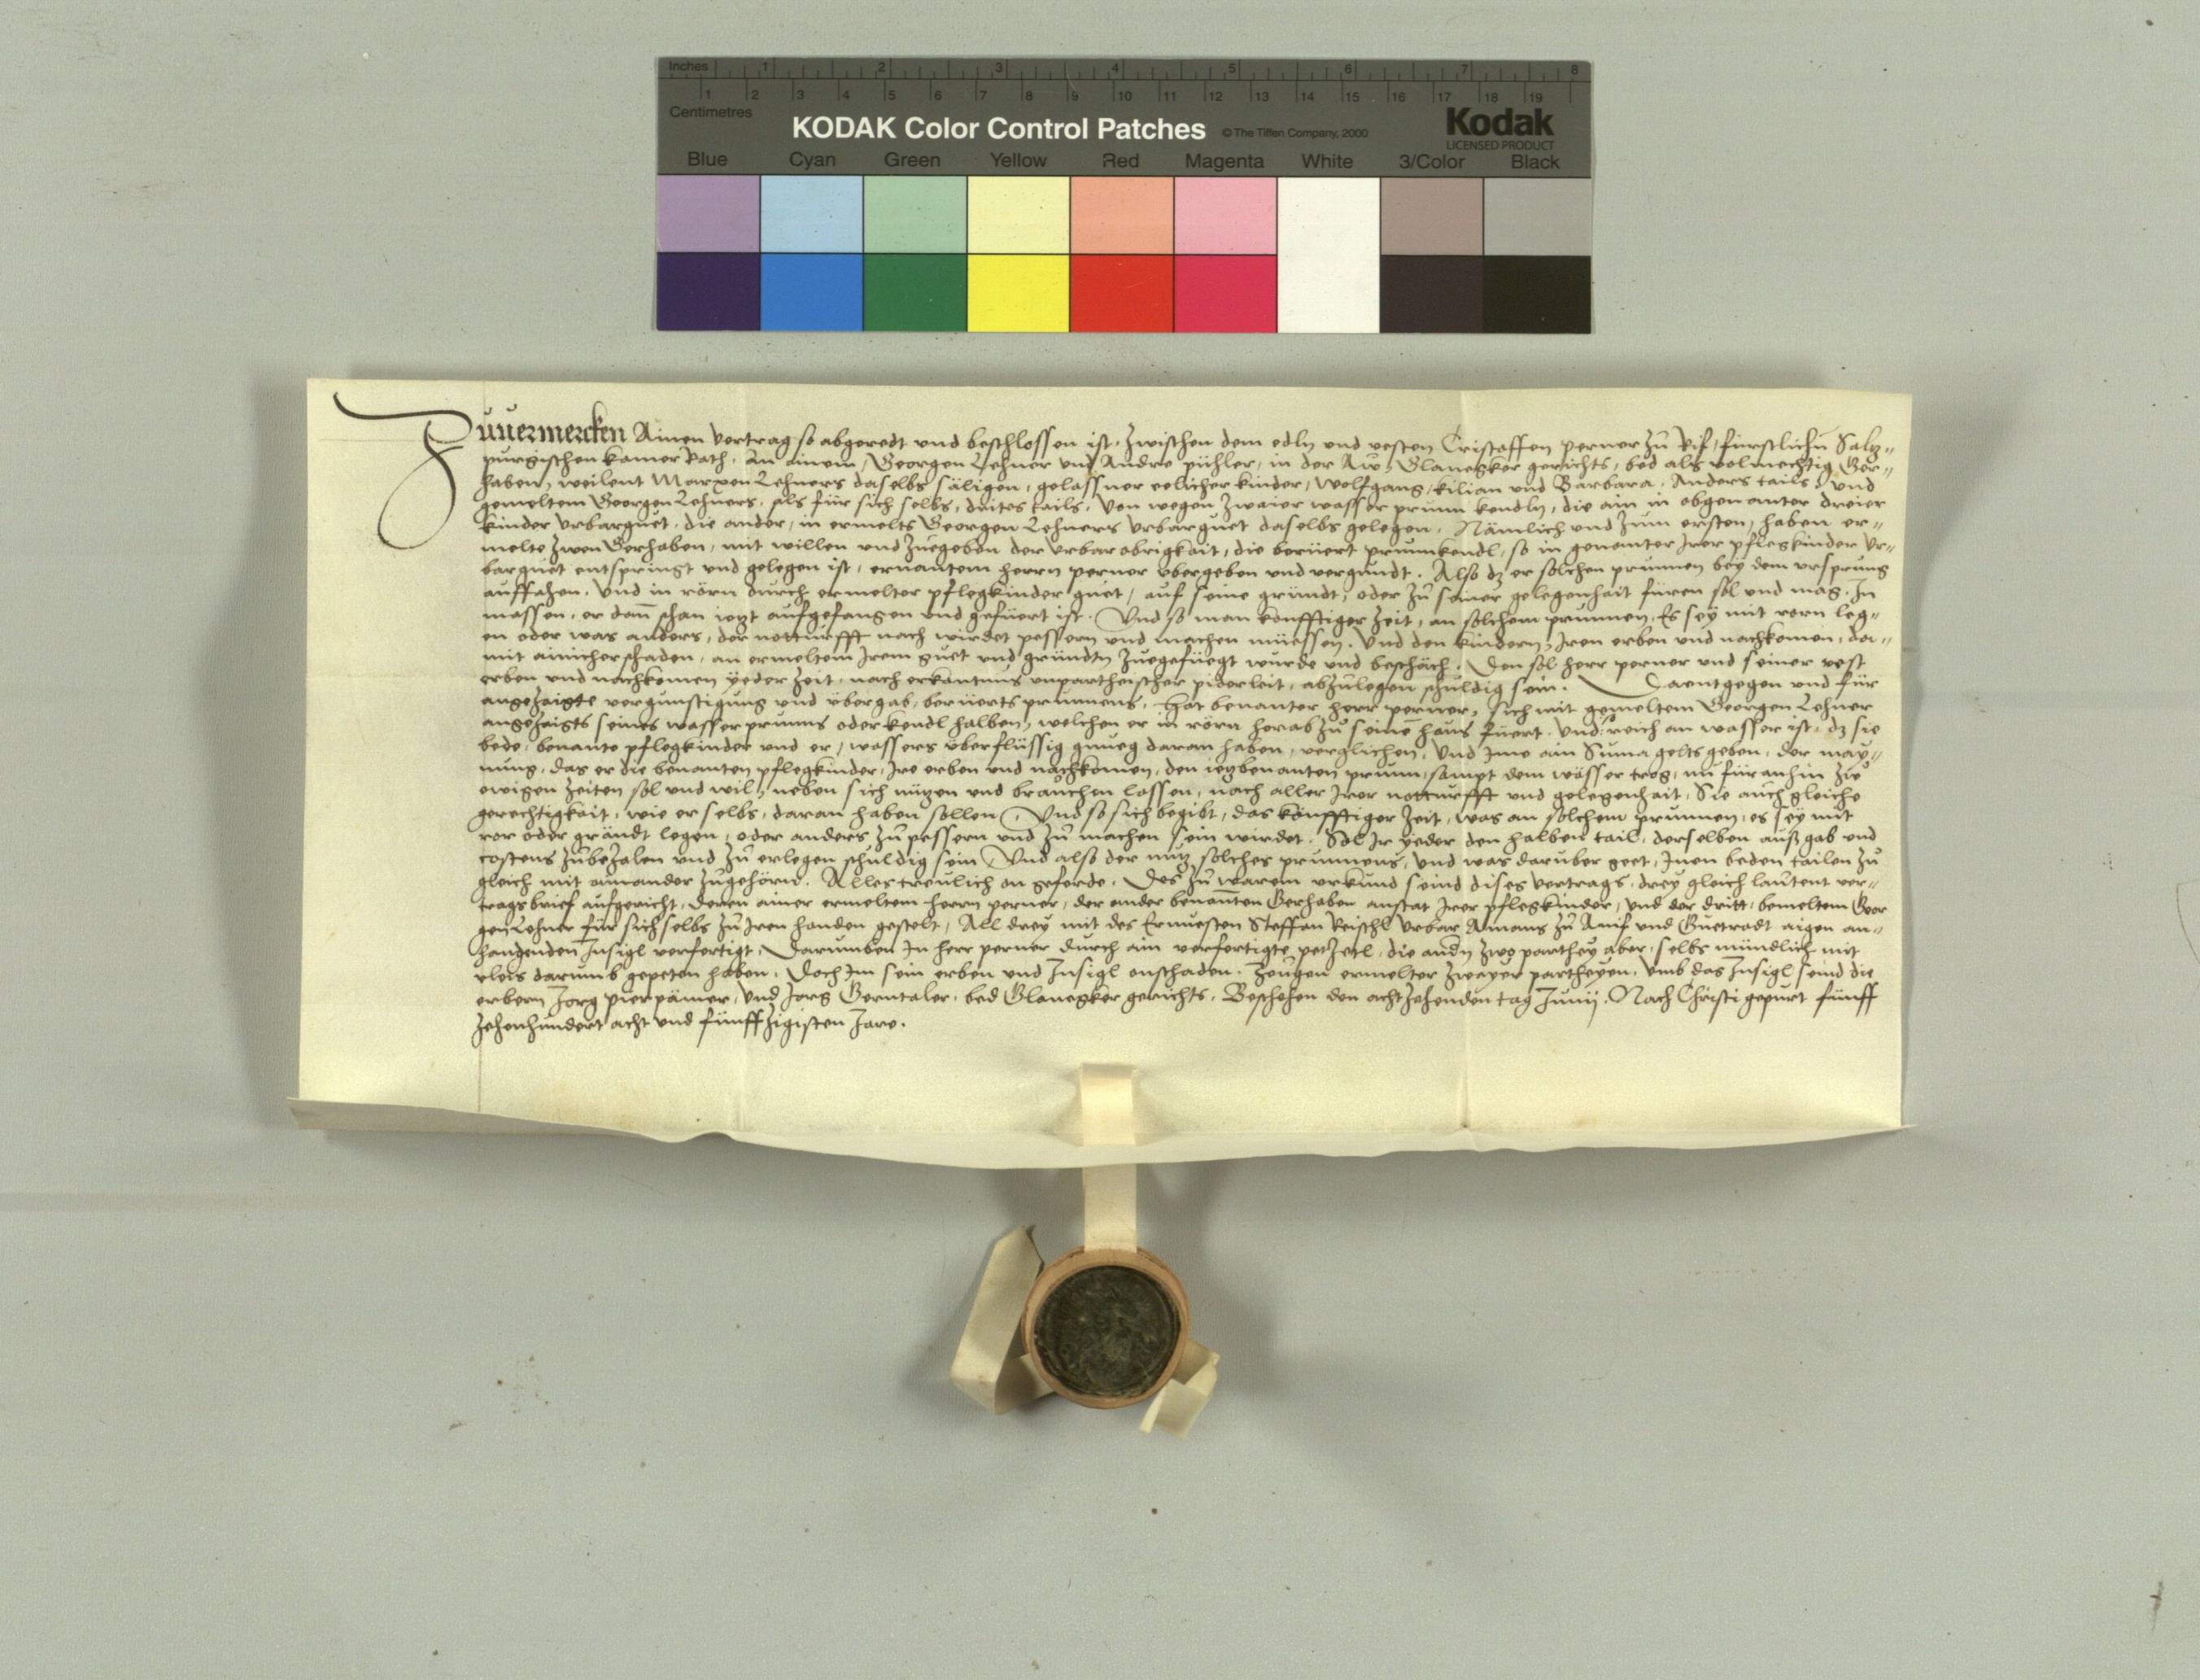 Inches 1 2 3 4 5 6 7 8
1 2 3 4 5 6 7 8 9 10 11 12 13 14 15 16 17 18 19
Centimetres
KODAK Color Control Patches © The Tiffen Company, 2000 Kodak
LICENSED PRODUCT
Blue Cyan Green Yellow Red Magenta White 3/Color Black
Zuuermercken Ainen vertrag so abgeredt und beschlossen ist, zwischen dem edln und vesten Cristoffen perner zu Rif, fürstlichn Saltz-
purgischen Camer Rath, An ainem, Georgen Lehner und Andre pühler, in der Aw, Glanegker gerichts, bed als volmechtig Ger-
haben, weilent Marxen Lehners daselbs säligen, gelassner eelicher kinder, Wolfgang, Kilian und Barbara, Anders tails, und
gemeltem Georgen Lehners, als für sich selbs, drites tails, Von wegen zwaier wasser prunn kendln, die ain in obgenanter dreier
kinder urbarguet, die ander, in ermelts Georgen Lehners urbarguet daselbs gelegen. Nämlich und zum ersten, haben er-
melte zwen Gerhaben, mit willen und zuegeben der urbarobrigkait, die berüert prunnkendl, so in genanter Irer pflegkinder ur-
barguet entspringt und gelegen ist, ernantem herrn perner übergeben und vergundt. Also dz er solchen prunnen bey dem ursprung
auffahen, und in rörn durch ermelter pflegkinder guet, auf seine gründt, oder zu seiner gelegenhait füren sol und mag, In
massen, er dann schan ietzt aufgefangen und gefüert ist. Und so man konfftiger zeit, an solchem prunnen, Es sey mit rorn leg-
en oder was anders, der notturfft nach wirdet pessern und machen müessen. Und den kindern, Iren erben und nachkomen, da-
mit ainicher schaden, an ermeltem Irem guet und gründtn zuegefüegt wurde und beschäch. Den sol herr perner und seiner vest
erben und nachkomen yeder zeit, nach erkantnus unparteischer piderleit, abzulegen schuldig sein. Daentgegen und für
angezaigte vergunstigung und übergab, berüerts prunnens, Hat benanter herr perner, sich mit gemeltem Georgen Lehner
angezaigts seines wasser prunns oder kendl halben, welchen er in rörn herab zu seinem haus füert, und so reich an wasser ist, dz sie
bede, benante pflegkinder und er, wassers überflüssig gnueg daran haben, verglichen, Und Ime ain Suma gelts geben, der may-
nung, das er die benanten pflegkinder, Ire erben und nachkomen, den ietzbenanten prunn, sampt dem wasser trog, nu füranhin zu
ewigen zeiten sol und wil, neben sich nützen und brauchen lassen, nach aller Irer notturfft und gelegenhait, Sie auch gleiche
gerechtigkait, wie er selbs, daran haben sollen. Und so sich begibt, das konfftiger zeit, was an solchem prunnen, es sey mit
ror oder grändt legen, oder anders zu pessern und zu machen sein wirdet. Sol Ir yeder den halben tail, derselben ausgab und
costens zubezalen und zu erlegen schuldig sein. Und also der nutz solches prunnens, und was daruber geet, Inen beden tailen zu
gleich mit ainander zugehörn. Alles treulich on geferde. Des zu warem urkund seind dises vertrags, drey gleich lautent ver-
tragsbrief aufgericht, deren ainer ermeltem herrn perner, der ander benannten Gerhaben anstat Irer pflegkinder, und der dritt, bemeltem Geor
gen Lehner für sich selbs zu Iren handen gestelt, All drey mit des Ernuesten Steffan Reischl Urbar Amans zu Anif und Guetradt aigen an-
hangenden Insigl verfertigt, Darumben In herr perner durch ain verfertigte petzetl, die andn zwo parthey aber, selbs mündlich mit
vleis darumb gepeten haben. Doch Im sein erben und Insigl onschaden. Zeugen ermelter zwayer partheyen, umb das Insigl seind die
erbern Jorg pierpämer, und Jorg Gerntaler, bed Glanegker gerichts. Beschehen den achtzehenden tag Junij. Nach Christi gepurt fünff
zehenhundert acht und fünffzigisten Jare.